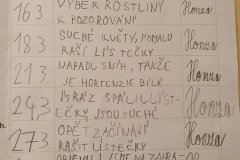 16.3 VÝBĚR ROSTLINY Honza
K POZOROVÁNÍ
18.3 SUCHÉ KVĚTY, POMALU Honza
RAŠÍ LÍSTEČKY
21.3 NAPADL SNÍH, TAKŽE Honza
JE HORTENZIE BÍLÁ
24.3 MRÁZ SPÁLIL LÍST- Honza
EČKY, JSOU SUCHÉ
27.3 OPĚT ZAČÍNAJÍ Honza
RAŠIT LÍSTEČKY
OBJEVILI JSME NA ZAHRA-